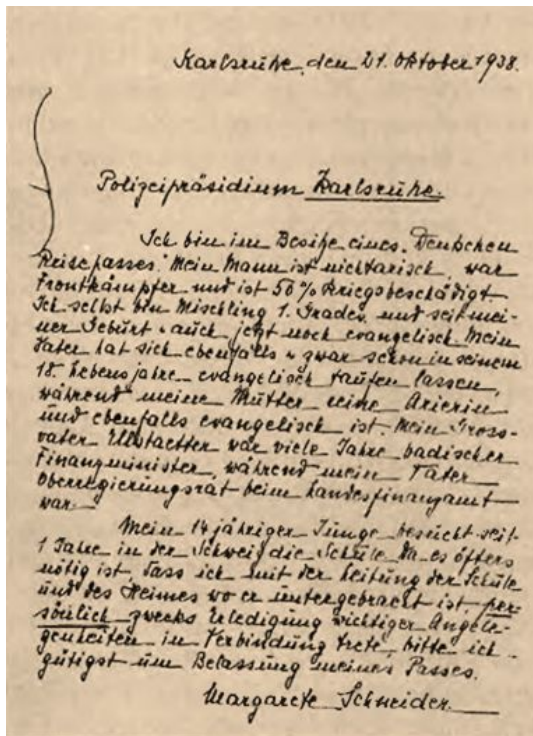 Karlsruhe, den 21. Oktober 1938.
Polizeipräsidium Karlsruhe.
Ich bin im Besitze eines Deutschen
Reisepasses. Mein Mann ist nichtarisch, war
Frontkämpfer und ist 50% kriegsbeschädigt
Ich selbst bin Mischling 1. Grades und seit mei-
ner Geburt u. auch jetzt noch evangelisch. Mein
Vater hat sich ebenfalls u. zwar schon in seinem
18. Lebensjahre evangelisch taufen lassen,
während meine Mutter eine Arierin
und ebenfalls evangelisch ist. Mein Gross-
vater Ellstaetter war viele Jahre badischer
Finanzminister, während mein Vater
Oberregierungsrat beim Landesfinanzamt
war.
Mein 14 jähriger Junge besucht seit
1 Jahre in der Schweiz die Schule. Da es öfters
nötig ist, dass ich mit der Leitung der Schule
und des Heimes wo er untergebracht ist per-
sönlich zwecks Erledigung wichtiger Angele-
genheiten in Verbindung trete, bitte ich
gütigst um Belassung meines Passes.
Margarete Schneider.